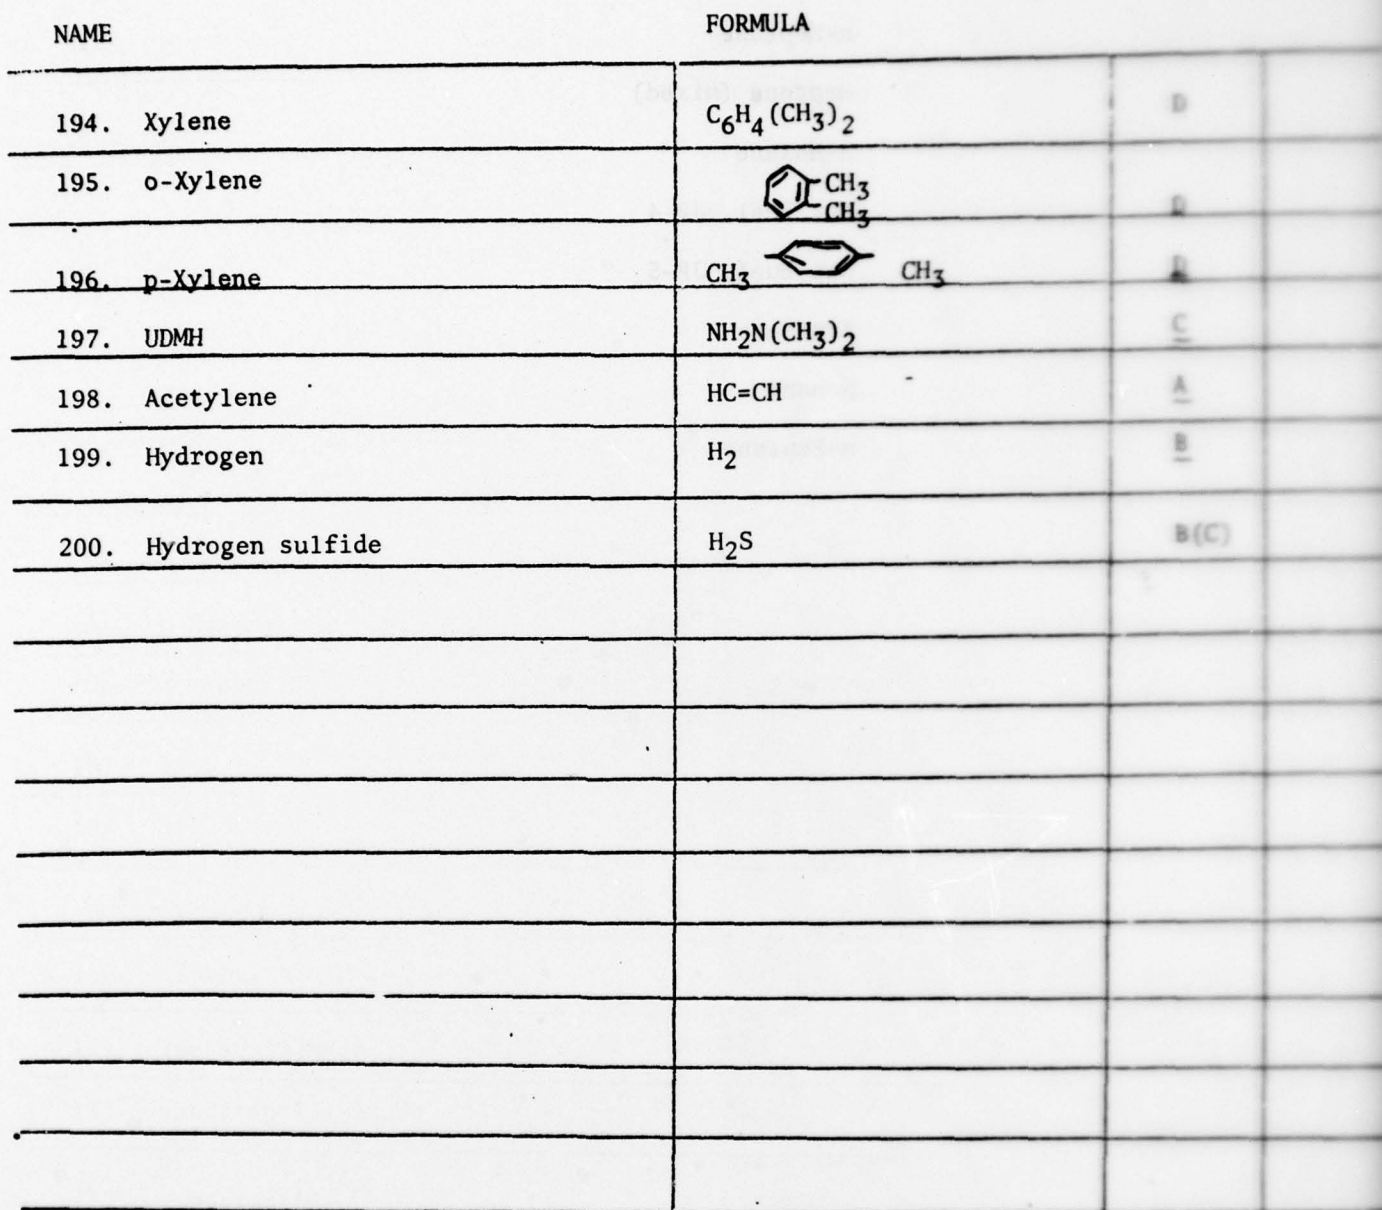 NAME FORMULA
194. Xylene C₆H₄(CH₃)₂ D
195. o-Xylene CH₃
CH₃ D
196. p-Xylene CH₃ CH₃
197. UDMH NH₂N(CH₃)₂ C
198. Acetylene HC=CH A
199. Hydrogen H₂ B
200. Hydrogen sulfide H₂S B(C)